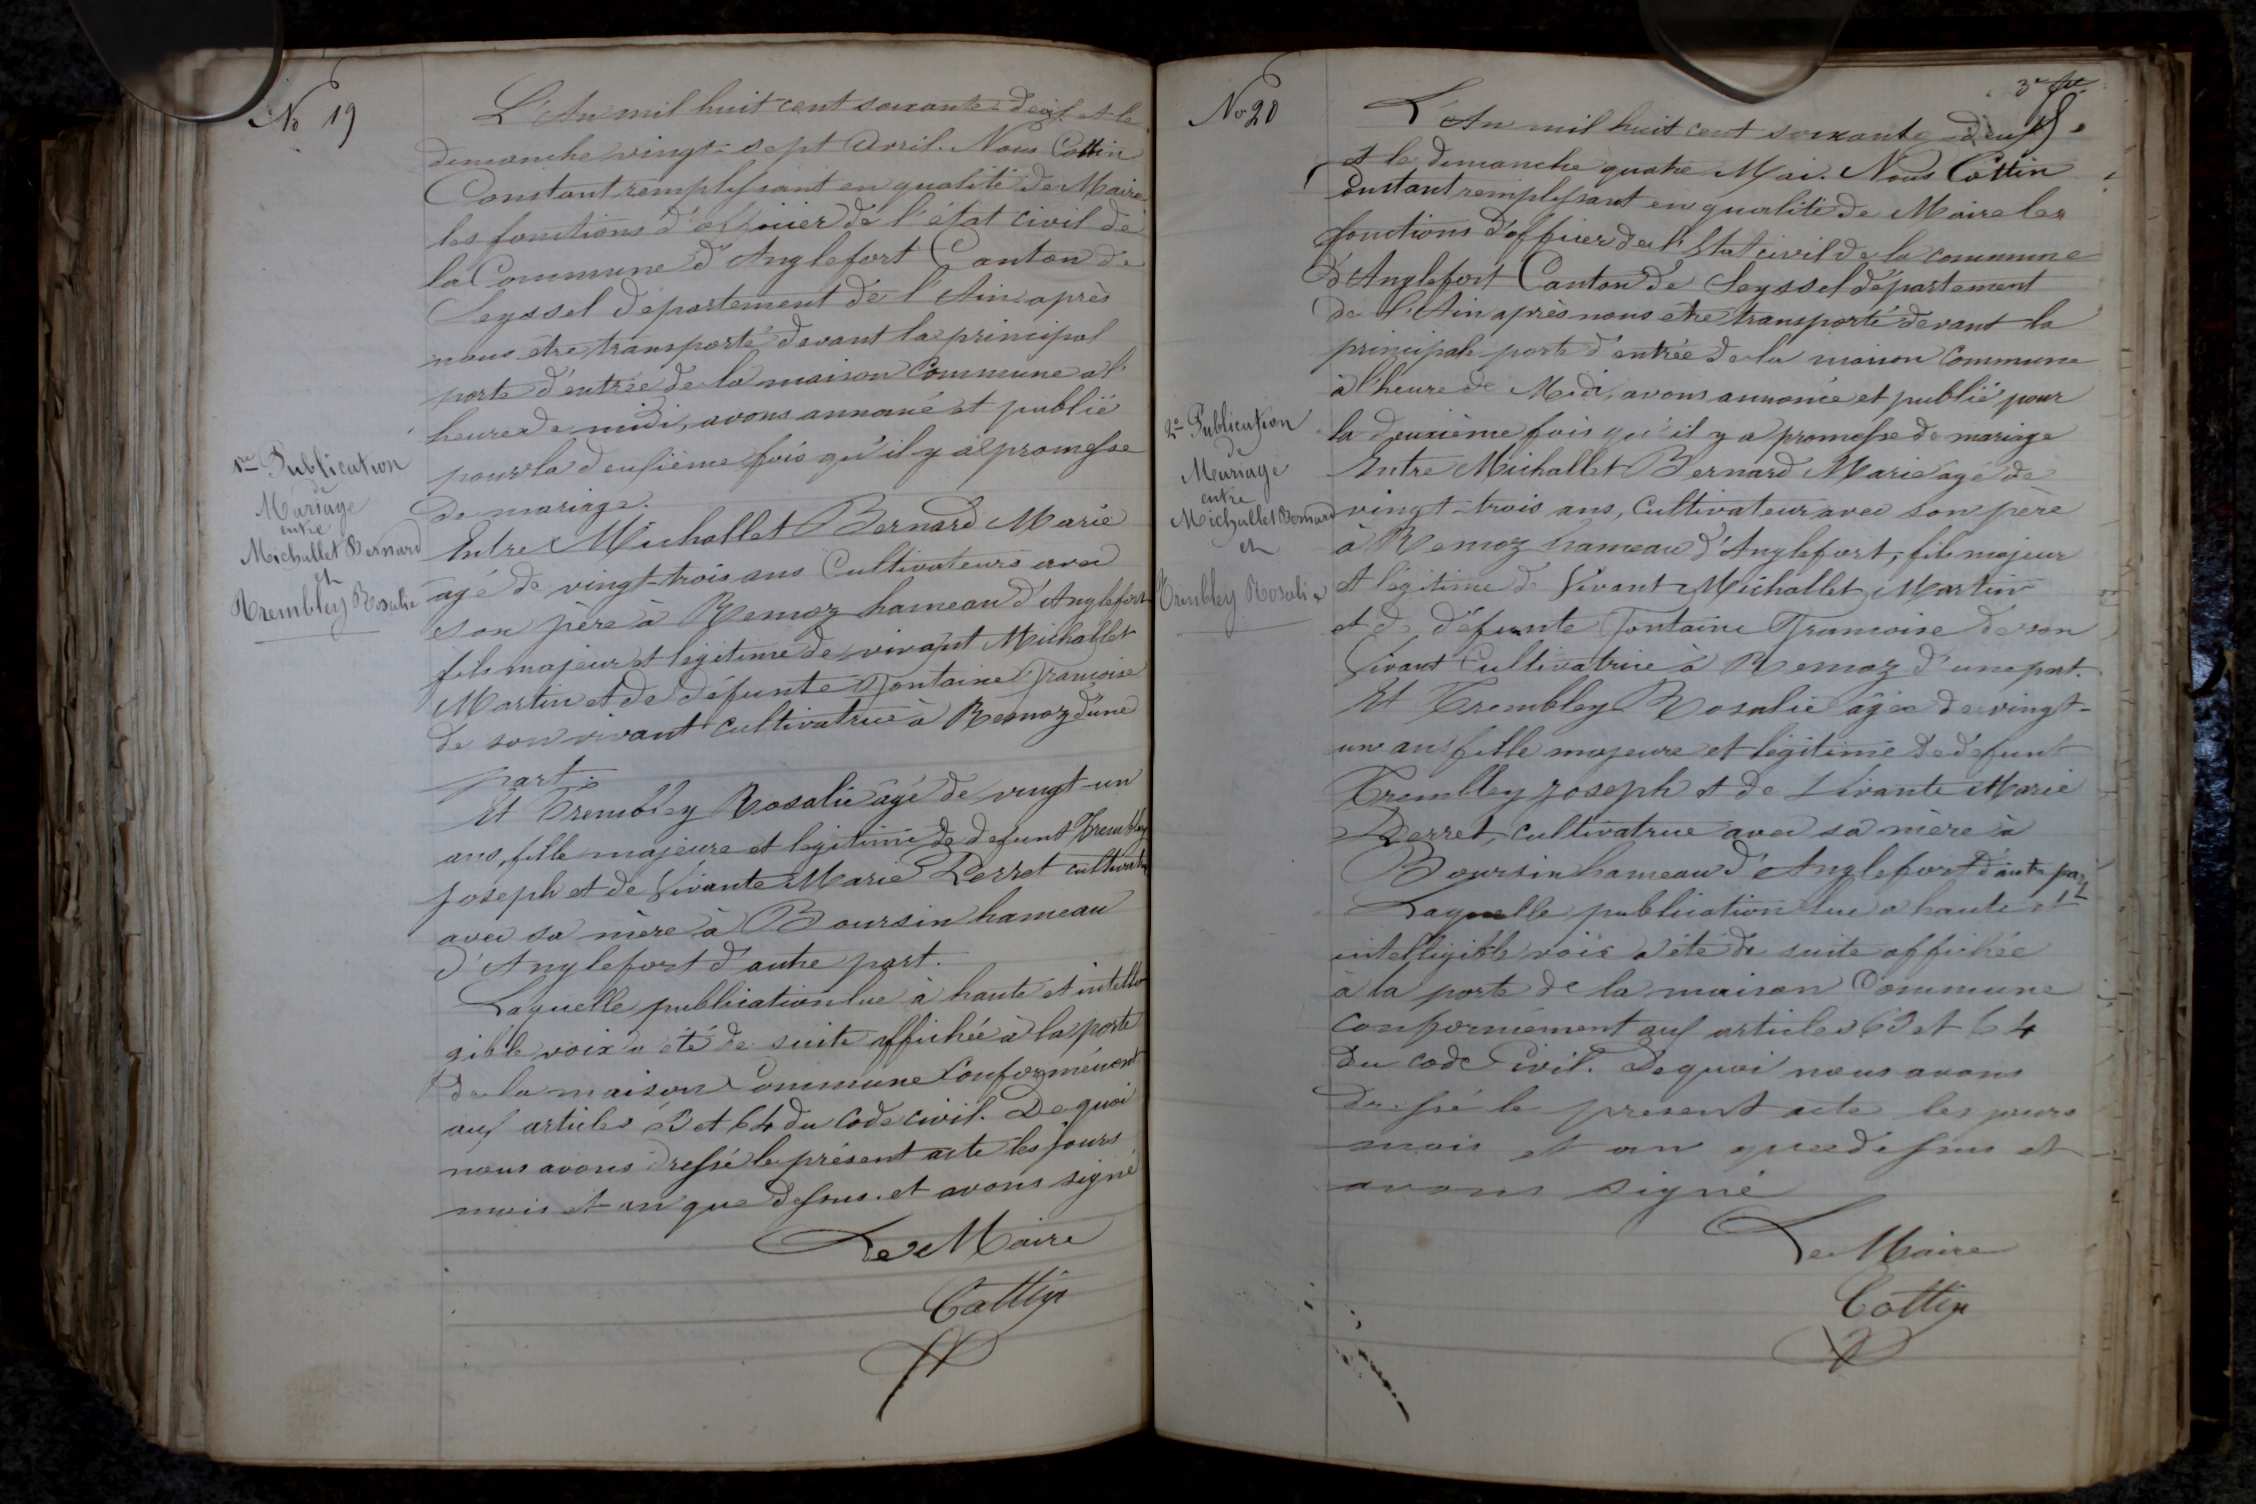 No 19
L'An mil huit cent soixante-deux et le
dimanche vingt-sept Avril. Nous Cottin
Constant remplissant en qualité de Maire
les fonctions d'officier de l'état civil de
la Commune d'Anglefort Canton de
Seyssel département de l'Ain après
nous etre transporté devant la principal
porte d'entrée de la maison Commune a l'
heure de midi, avons annoncé et publié
pour la deusième fois qu'il y a promesse
de mariage.
1re Publication
de
Mariage
entre
Michallet Bernard
et
Trembley Rosalie
Entre Michallet Bernard Marie
agé de vingt-trois ans Cultivateurs avec
son père à Remoz hameau d'Anglefort
fils majeur et legitime de vivant Michallet
Martin et de défunte Fontaine Françoise
de son vivant cultivatrice à Remoz d'une
part.
Et Trembley Rosalie âgé de vingt-un
ans, fille majeure et legitime de defunt Trembley
Joseph et de Vivante Marie Perret cultivatrice
avec sa mère à Boursin hameau
d'Anglefort d'autre part.
Laquelle publication lue à haute et intelli
gible voix a été de suite affichée à la porte
de la maison Commune Conformément
aux articles 63 et 64 du Code civil. De quoi
nous avons dressé le présent acte les jours
mois et an que dessus. et avons signé
Le Maire
Cottin
No 20
3e fte
L'An mil huit cent soixante-deux
et le dimanche quatre Mai. Nous Cottin
Constant remplissant en qualité de Maire les
fonctions d'officier de l'Etat civil de la commune
d'Anglefort Canton de Seyssel département
de l'Ain après nous etre transporté devant la
principale porte d'entrée de la maison Commune
à l'heure de Midi, avons annoncé et publié pour
la deuxième fois qu'il y a promesse de mariage
2e Publication
de
Mariage
entre
Michallet Bernard
et
Trembley Rosalie
Entre Michallet Bernard Marie âgé de
vingt-trois ans, Cultivateur avec son père
à Remoz hameau d'Anglefort, fils majeur
et légitime de Vivant Michallet Martin
et de défunte Fontaine Francoise de son
Vivant Cultivatrice à Remoz d'une part.
Et Trembley Rosalie âgée de vingt-
un ans fille majeure et légitime de défunt
Trembley Joseph et de Vivante Marie
Perret, cultivatrice avec sa mère à
Boursin hameau d'Anglefort d'autre part
Laquelle publication lue a haute et
intelligible voix a été de suite affichée
à la porte de la maison Commune
conformément aux articles 63 et 64
du code Civil. De quoi nous avons
dressé le présent acte les jours
mois et an que dessus et
avons signé
Le Maire
Cottin